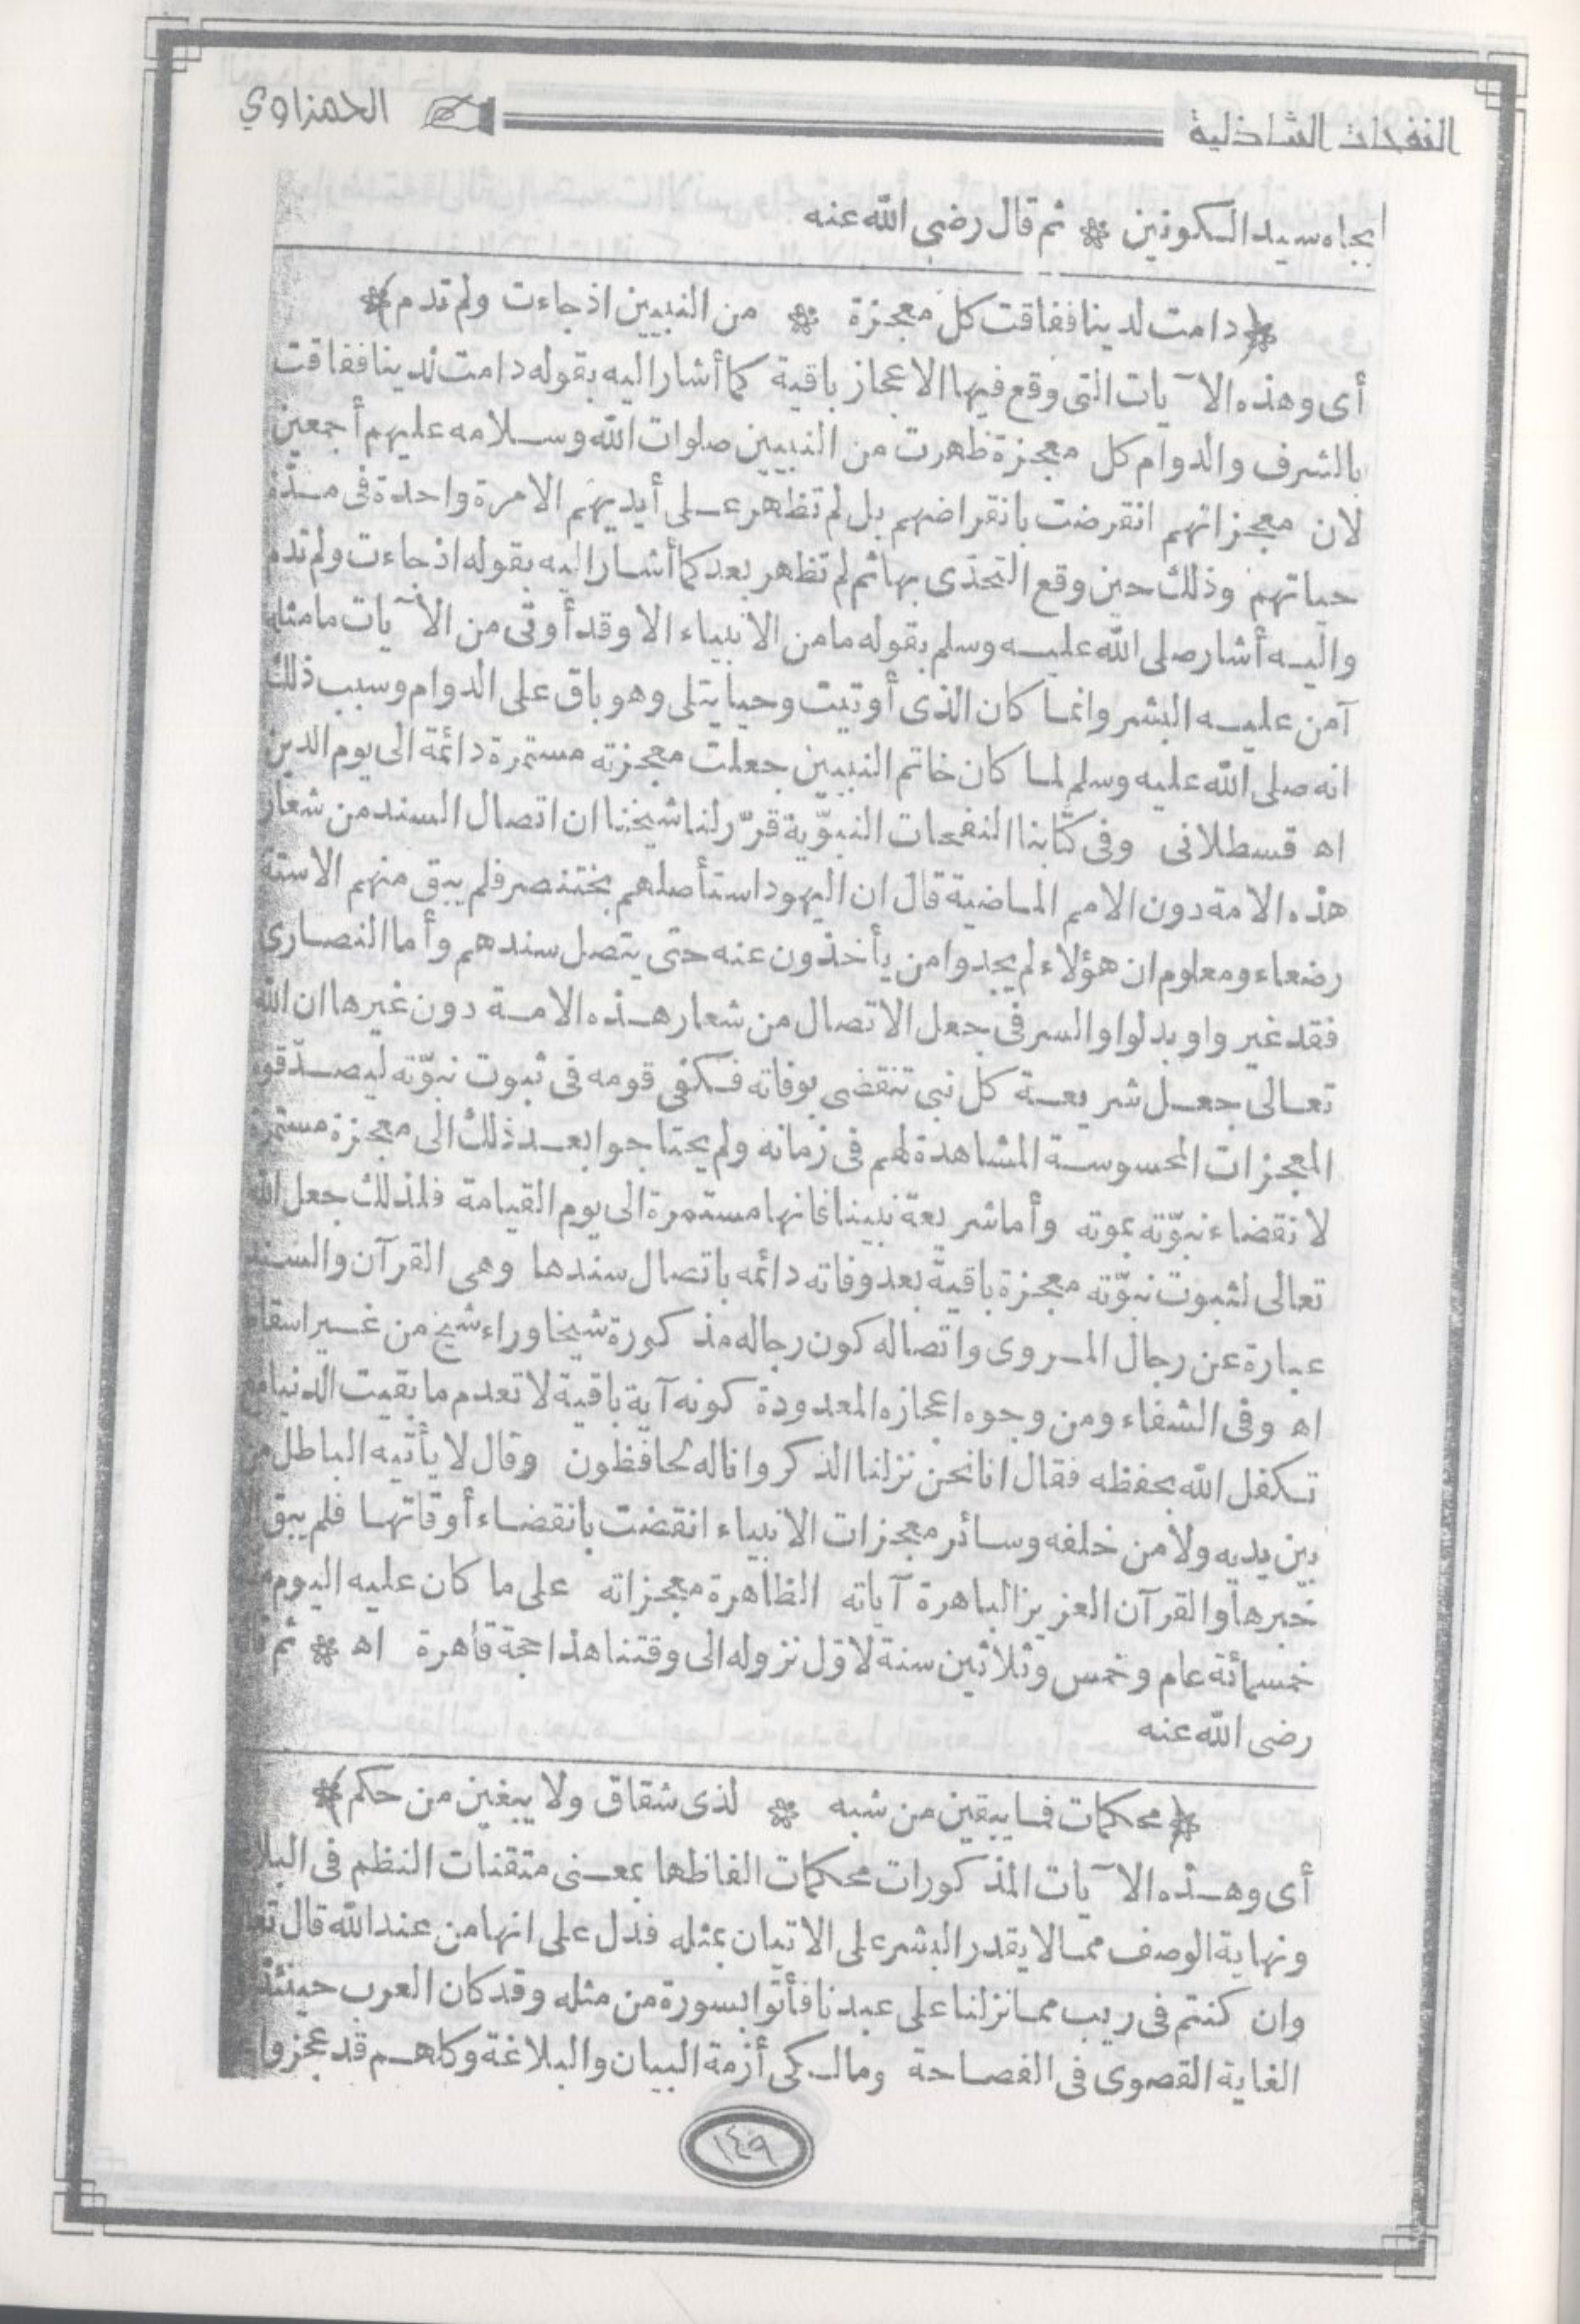 النفحات الشاذلية الحمزاوي
بجاه سيد الكونين * ثم قال رضي الله عنه
(دامت لدينا ففاقت كل معجزة * من النبيين اذ جاءت ولم تدم)
أى وهذه الآيات التى وقع فيها الاعجاز باقية كما أشار اليه بقوله دامت لدينا ففاقت
بالشرف والدوام كل معجزة ظهرت من النبيين صلوات الله وسلامه عليهم أجمعين
لان معجزاتهم انقرضت بانقراضهم بل لم تظهر على أيديهم الامرة واحدة فى مدّة
حياتهم وذلك حين وقع التحدّى بها ثم لم تظهر بعد كما أشار اليه بقوله اذ جاءت ولم تدم
واليه أشار صلى الله عليه وسلم بقوله ما من الانبياء الا وقد أوتى من الآيات ما مثله
آمن عليه البشر وانما كان الذى أوتيت وحيا يتلى وهو باق على الدوام وسبب ذلك
انه صلى الله عليه وسلم لما كان خاتم النبيين جعلت معجزته مستمرة دائمة الى يوم الدين
اه قسطلانى وفى كتابنا النفحات النبوّية قرّر لنا شيخنا ان اتصال السند من شعار
هذه الامة دون الامم الماضية قال ان اليهود استأصلهم بختنصر فلم يبق منهم الا ستة
رضعاء ومعلوم ان هؤلاء لم يجدوا من يأخذون عنه حتى يتصل سندهم وأما النصارى
فقد غير واو بدلوا والسر فى جعل الاتصال من شعار هذه الامة دون غيرها ان الله
تعالى جعل شريعة كل نبى تنقضى بوفاته فكفى قومه فى ثبوت نبوّته ليصدّقوه
المعجزات المحسوسة المشاهدة لهم فى زمانه ولم يحتاجوا بعد ذلك الى معجزة مستمرة
لانقضاء نبوّته بموته وأما شريعة نبينا فانها مستمرة الى يوم القيامة فلذلك جعل الله
تعالى لثبوت نبوّته معجزة باقية بعد وفاته دائمه باتصال سندها وهى القرآن والسند
عبارة عن رجال المروى واتصاله كون رجاله مذكورة شيخا وراء شيخ من غير اسقاط
اه وفى الشفاء ومن وجوه اعجازه المعدودة كونه آية باقية لا تعدم ما بقيت الدنيا
تكفل الله بحفظه فقال انا نحن نزلنا الذكر وانا له لحافظون وقال لا يأتيه الباطل من
بين يديه ولا من خلفه وسائر معجزات الانبياء انقضت بانقضاء أوقاتها فلم يبق
خبرها والقرآن العزيز الباهرة آياته الظاهرة معجزاته على ما كان عليه اليوم
خمسمائة عام وخمس وثلاثين سنة لاوّل نزوله الى وقتنا هذا حجة قاهرة اه * ثم
رضى الله عنه
(محكمات فما يبقين من شبه * لذى شقاق ولا يبغين من حكم)
أى وهذه الآيات المذكورات محكمات الفاظها بمعنى متقنات النظم فى
ونهاية الوصف مما لا يقدر البشر على الاتيان بمثله فدل على انها من عند الله قال
وان كنتم فى ريب مما نزلنا على عبدنا فأتوا بسورة من مثله وقد كان العرب حينئذ
الغاية القصوى فى الفصاحة ومالكى أزمة البيان والبلاغة وكلهم قد عجزوا
١٤٩